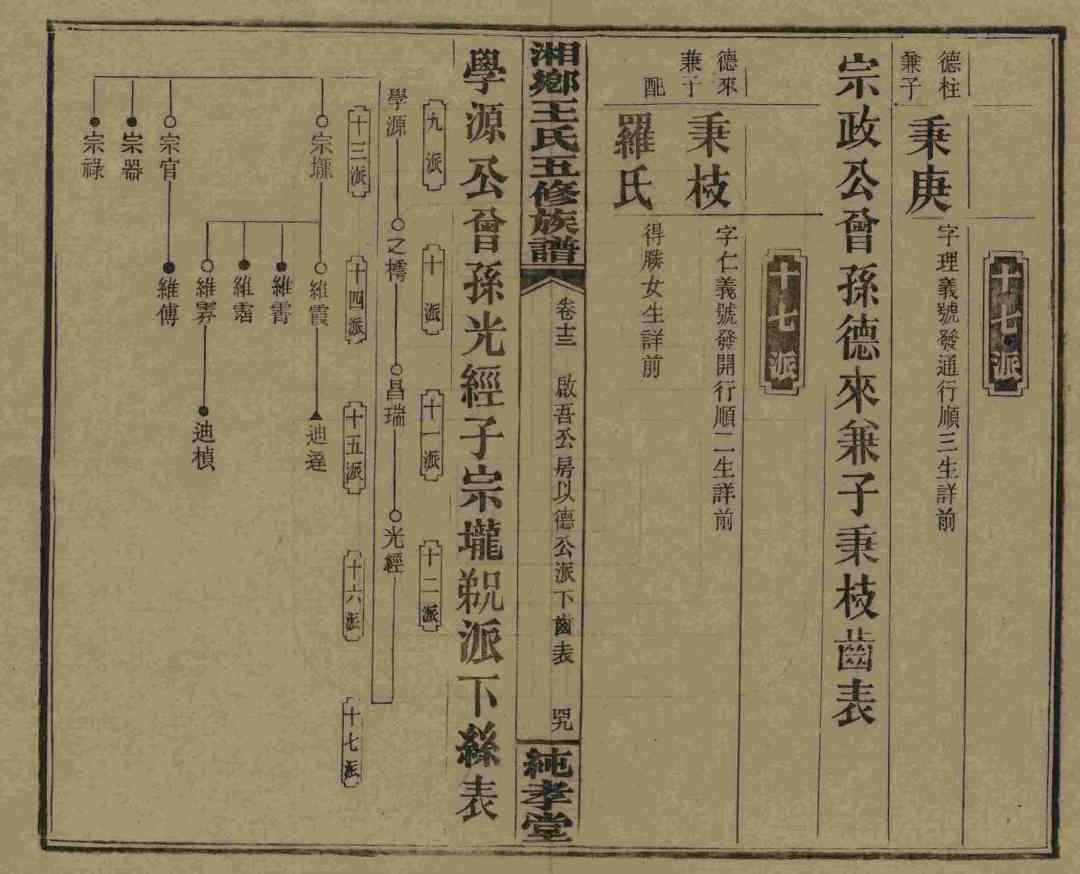 十七派
德柱
兼子
秉庚
字理義號發通行順三生詳前
宗政公曾孫德來兼子秉枝齒表
十七派
德來
兼子
秉枝
字仁義號發開行順二生詳前
配
羅氏
得勝女生詳前
湘鄉王氏五修族譜
卷十三
啟吾公房以德公派下齒表
純孝堂
學源公曾孫光經子宗壠派下系表
九派
十派
十一派
十二派
學源
之樗
昌瑞
光經
十三派
十四派
十五派
十六派
十七派
宗壠
宗官
宗器
宗祿
維霞
維霄
維霱
維霁
維傅
迪達
迪楨